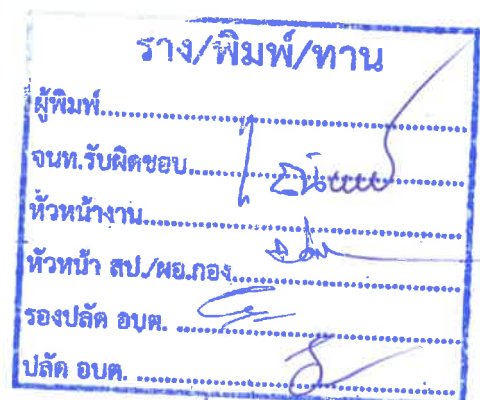 ร่าง/พิมพ์/ทาน
ผู้พิมพ์....................
จนท.รับผิดชอบ....................
หัวหน้างาน....................
หัวหน้า สป./ผอ.กอง....................
รองปลัด อบต. ....................
ปลัด อบต. ....................